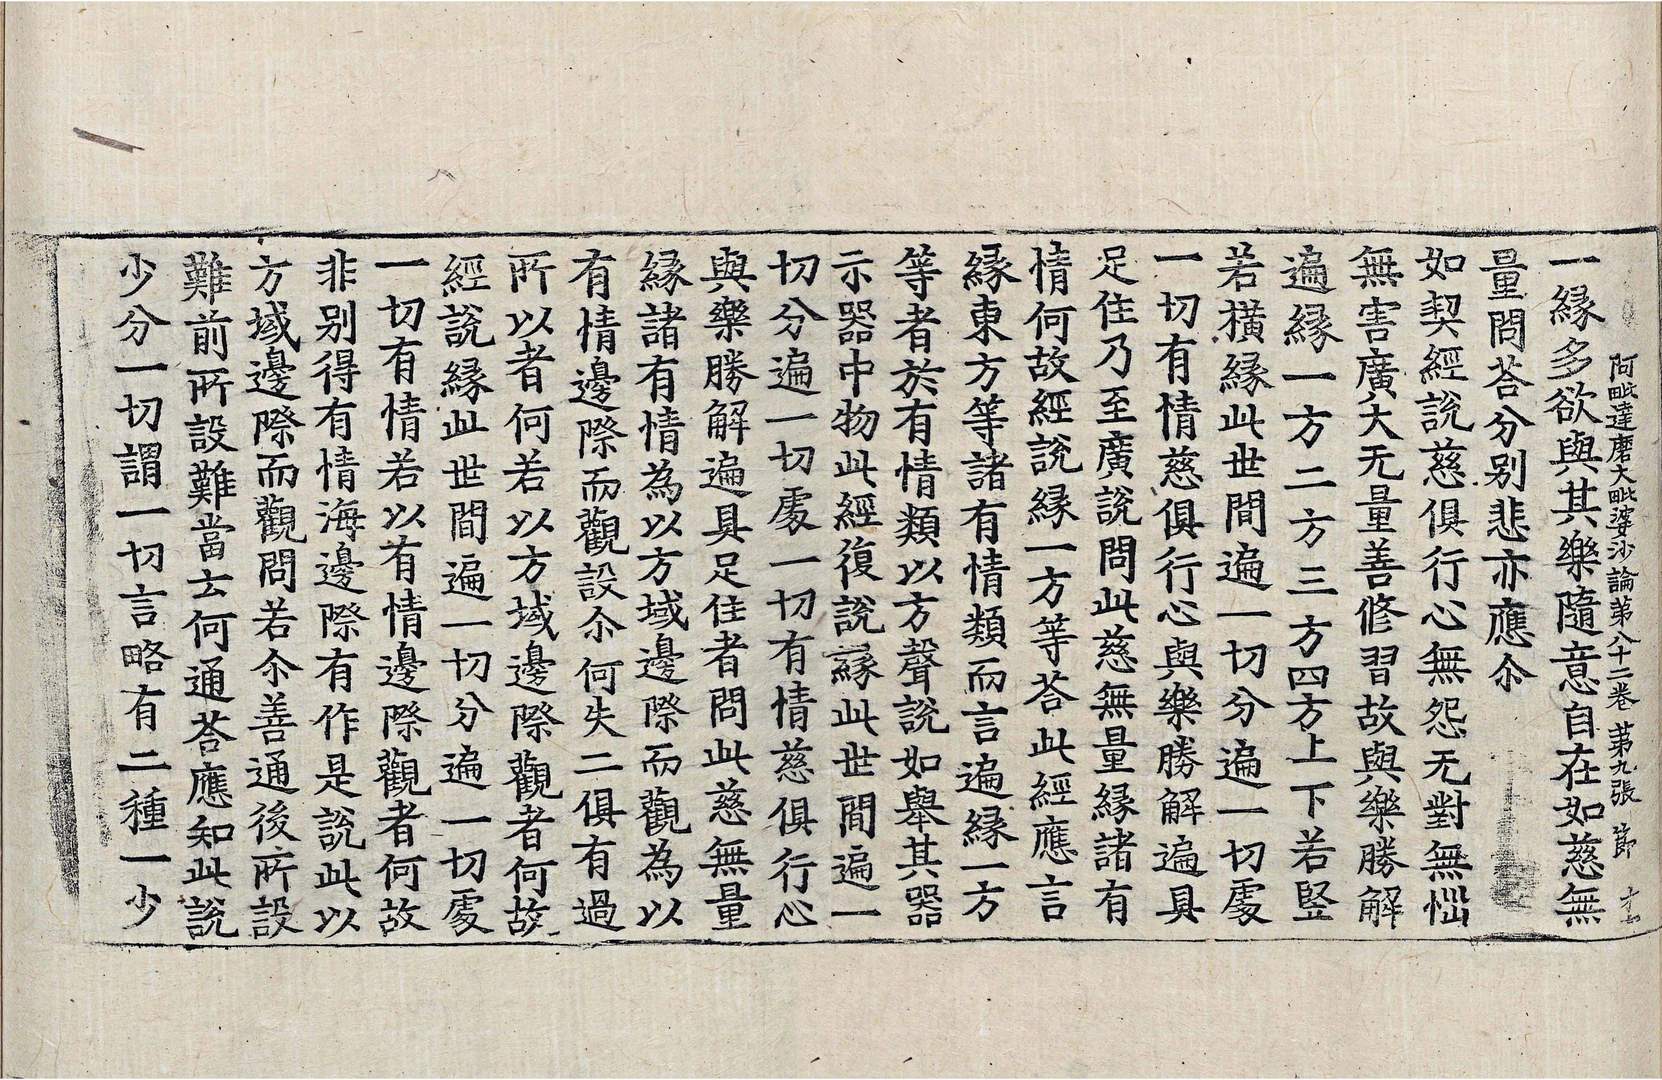 阿毗達磨大毗婆沙論第八十二卷 第九張 節
一緣多欲與其樂隨意自在如慈無
量問荅分別悲亦應尒
如契經說慈俱行心無怨无對無惱
無害廣大无量善修習故與樂勝解
遍緣一方二方三方四方上下若竪
若橫緣此世間遍一切分遍一切處
一切有情慈俱行心與樂勝解遍具
足住乃至廣說問此慈無量緣諸有
情何故經說緣一方等荅此經應言
緣東方等諸有情類而言遍緣一方
等者於有情類以方聲說如舉其器
示器中物此經復說緣此世間遍一
切分遍一切處一切有情慈俱行心
與樂勝解遍具足住者問此慈無量
緣諸有情為以方域邊際而觀為以
有情邊際而觀設尒何失二俱有過
所以者何若以方域邊際觀者何故
經說緣此世間遍一切分遍一切處
一切有情若以有情邊際觀者何故
非別得有情海邊際有作是說此以
方域邊際而觀問若尒善通後所設
難前所設難當云何通荅應知此說
少分一切謂一切言略有二種一少